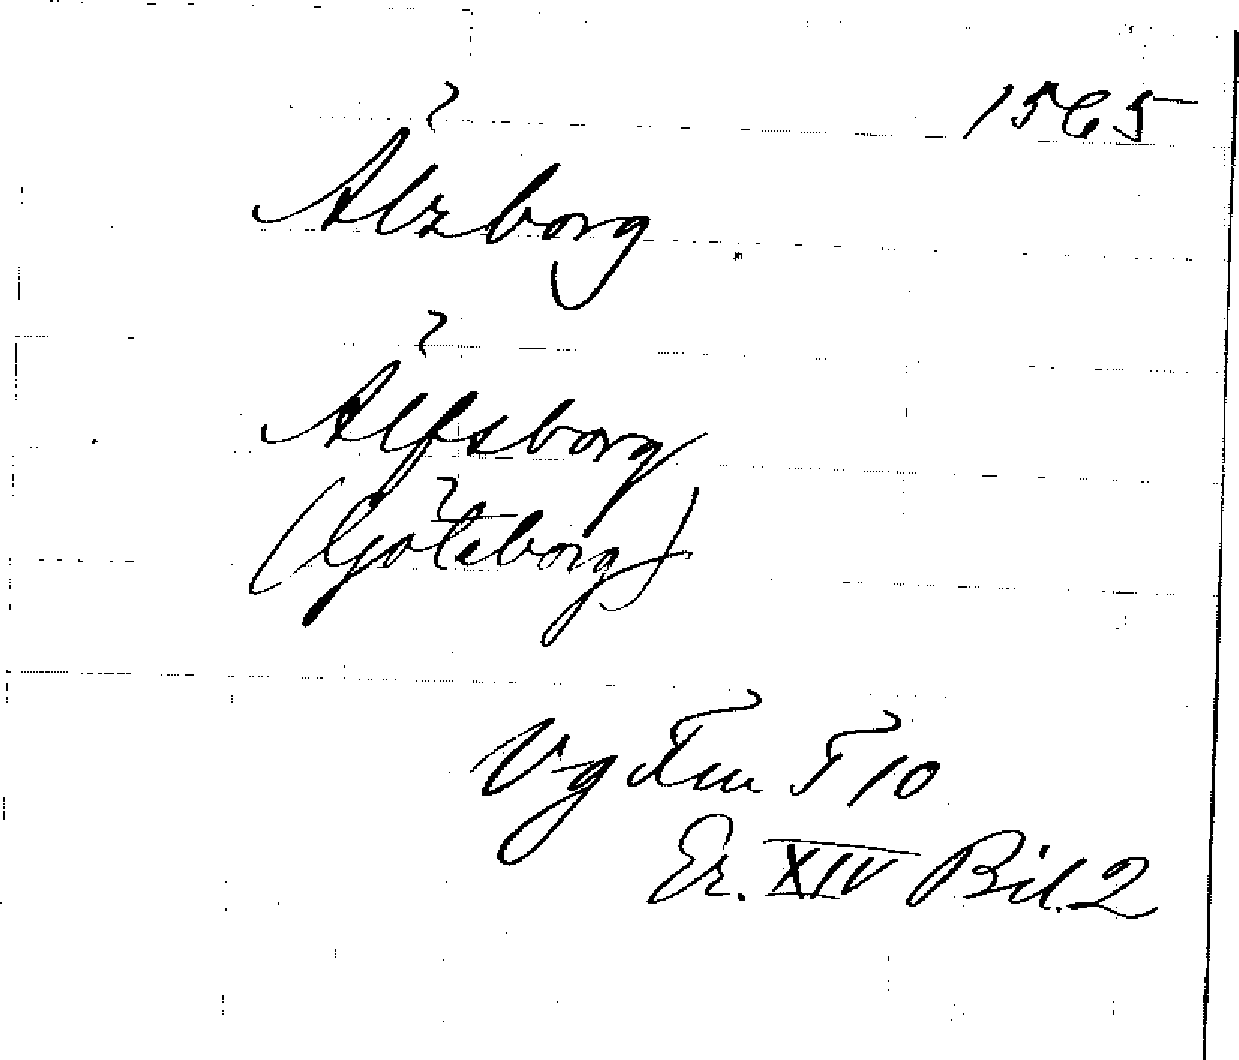 1565
Älzborg
Älfsborg
(Göteborg)
Vg Tun T 10
Er. XIV Bil. 2